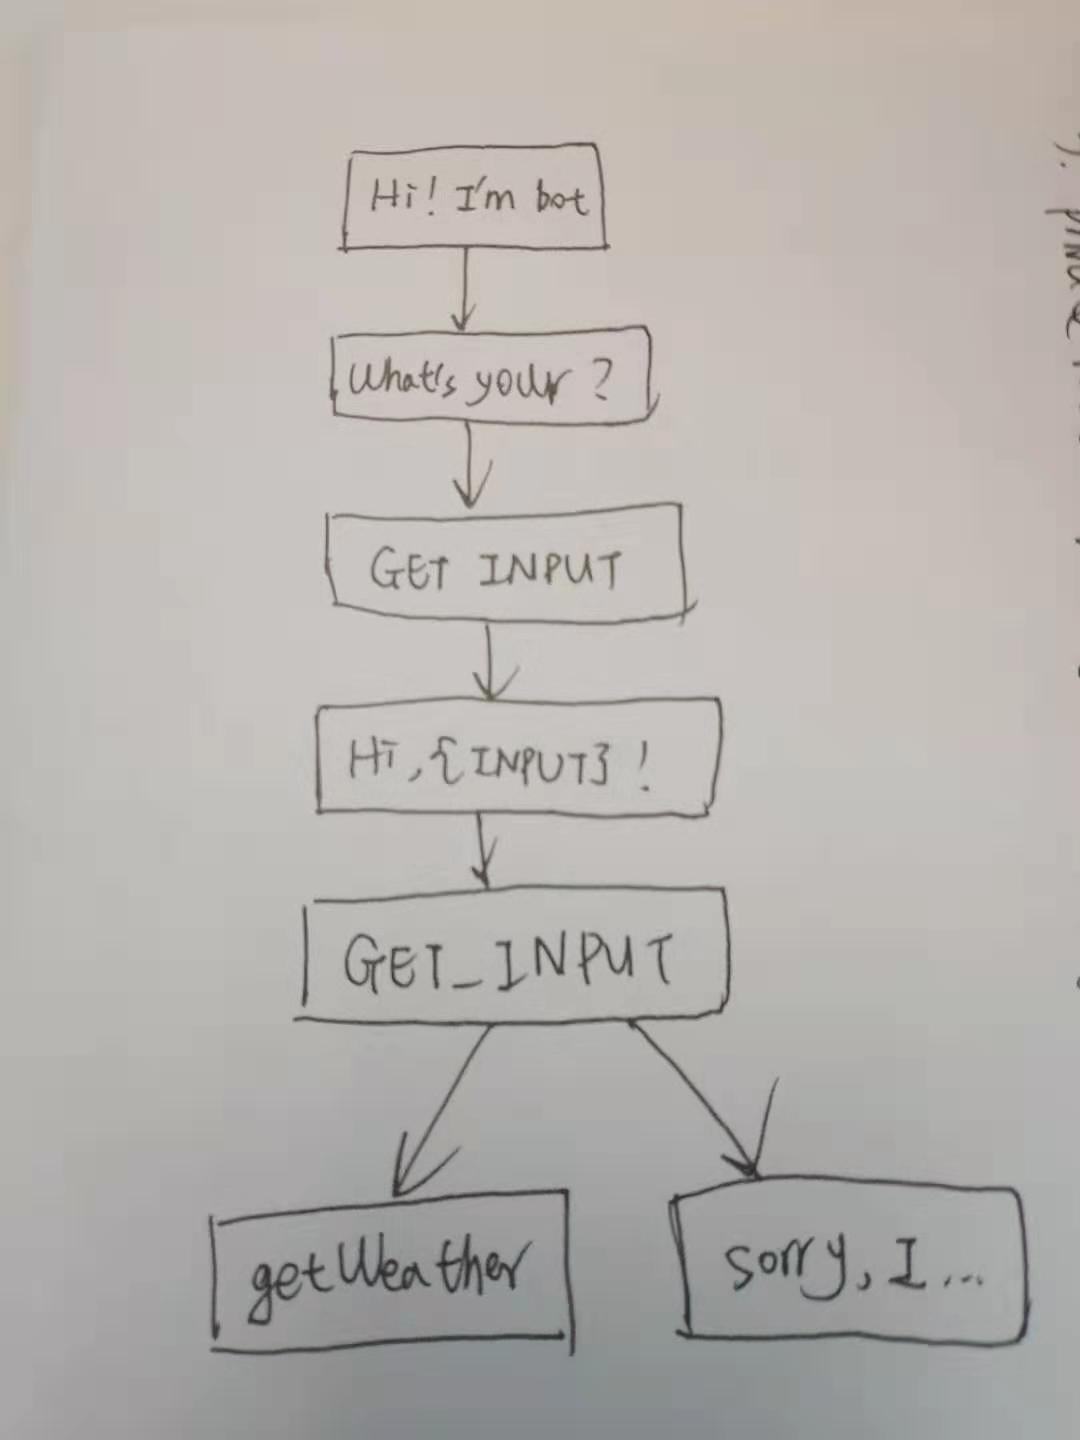 Hi! I'm bot
What's your ?
GET INPUT
Hi, {INPUT} !
GET_INPUT
getWeather
sorry, I ...